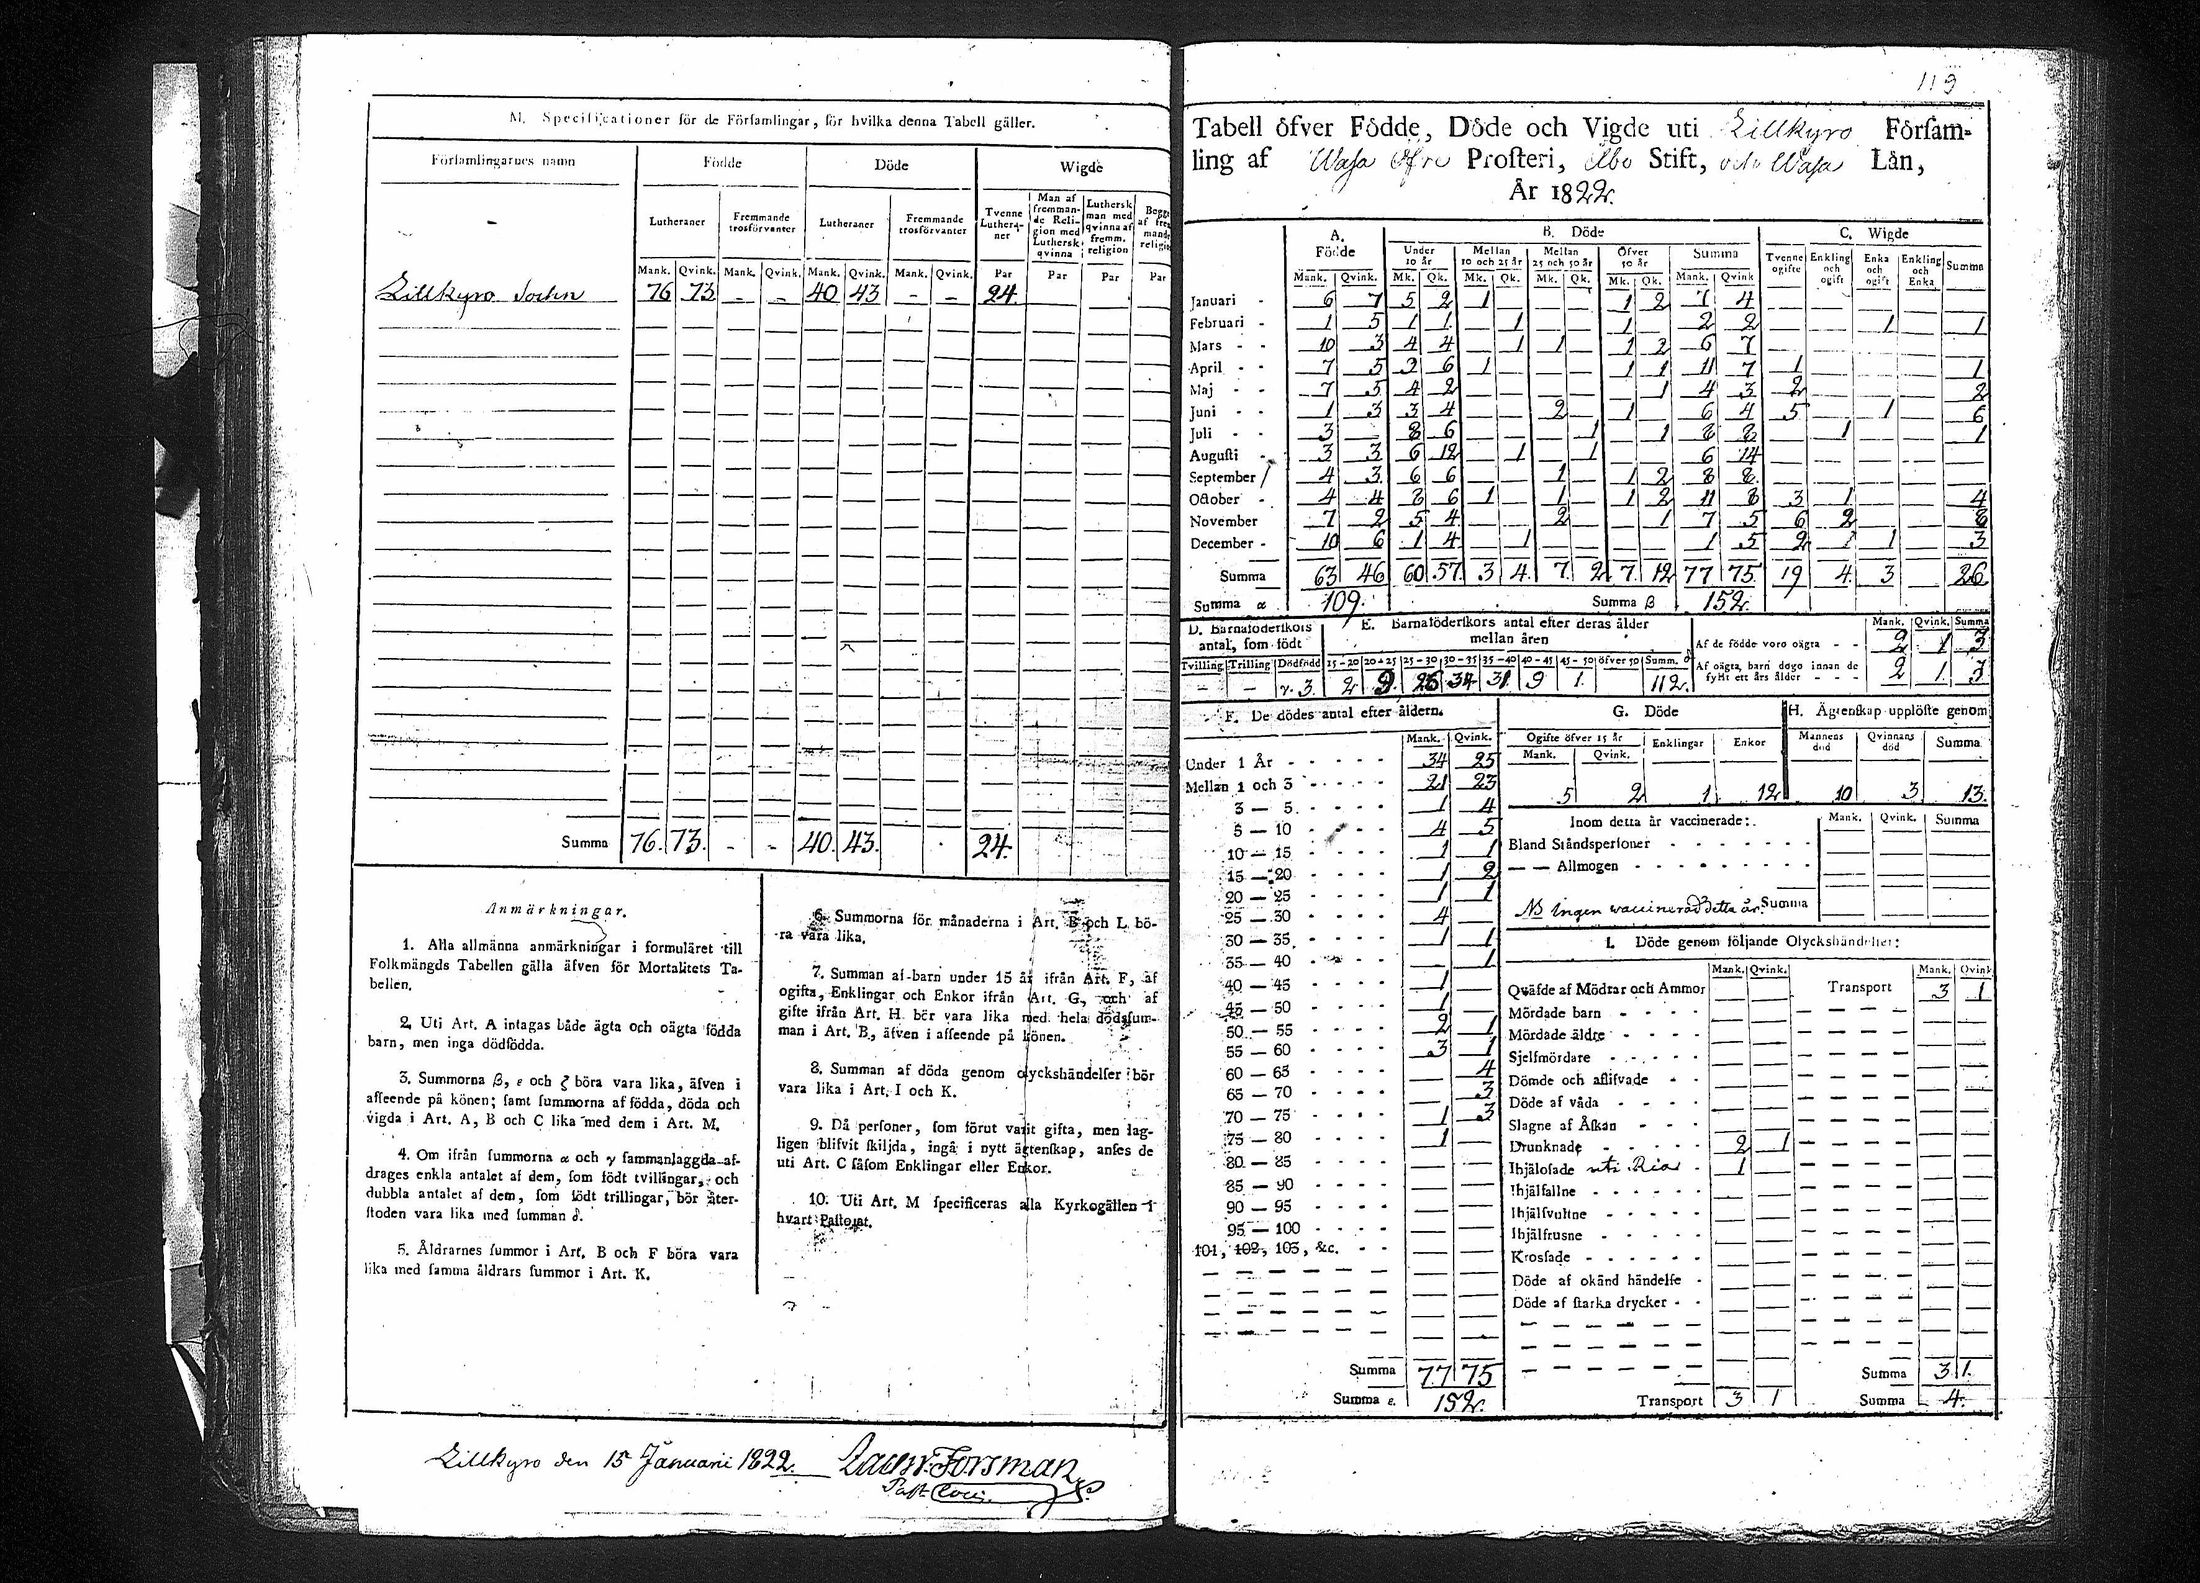 M. Specificationer för de Församlingar, för hvilka denna Tabell gäller.
Församlingarnes namn Födde Döde Wigde
Lutheraner Fremmande trosförvanter Lutheraner Fremmande trosförvanter Tvenne Lutheraner Man af fremmande Religion med Luthersk qvinna Luthersk man med qvinna af fremm. religion
Mank. Qvink. Mank. Qvink. Mank. Qvink. Mank. Qvink. Par Par Par Par
Lillkyro Sochn 76 73 - - 40 43 - - 24
Summa 76. 73. - - 40. 43. 24.
Anmärkningar.
1. Alla allmänna anmärkningar i formuläret till
Folkmängds Tabellen gälla äfven för Mortalitets Ta-
bellen.
2. Uti Art. A intagas både ägta och oägta födda
barn, men inga dödfödda.
3. Summorna β, ε och ζ böra vara lika, äfven i
afseende på könen; samt summorna af födda, döda och
vigda i Art. A, B och C lika med dem i Art. M.
4. Om ifrån summorna α och γ sammanlaggda af-
drages enkla antalet af dem, som födt tvillingar, och
dubbla antalet af dem, som födt trillingar, bör åter-
stoden vara lika med summan δ.
5. Åldrarnes summor i Art. B och F böra vara
lika med samma åldrars summor i Art. K.
6. Summorna för månaderna i Art. B och L bö-
ra vara lika.
7. Summan af barn under 15 år ifrån Art. F, af
ogifta, Enklingar och Enkor ifrån Art. G, och af
gifte ifrån Art. H bör vara lika med hela dödssum-
man i Art. B, äfven i afseende på könen.
8. Summan af döda genom olyckshändelser bör
vara lika i Art. I och K.
9. Då personer, som förut varit gifta, men lag-
ligen blifvit skiljda, ingå i nytt ägtenskap, anses de
uti Art. C såsom Enklingar eller Enkor.
10. Uti Art. M specificeras alla Kyrkogällen i
hvart Pastorat.
Lillkyro den 15 Januarii 1822. Forsman
119
Tabell öfver Födde, Döde och Vigde uti Lillkyro Församling
af Wasa Öfre Prosteri, Åbo Stift, och Wasa Län,
År 1822.
A. Födde B. Döde C. Wigde
Under 10 år Mellan 10 och 25 år Mellan 25 och 50 år Öfver 50 år Summa Tvenne ogifte Enkling och ogift Enka och ogift Enkling och Enka Summa
Mank. Qvink. Mk. Qk. Mk. Qk. Mk. Qk. Mk. Qk. Mank. Qvink
Januari - 6 7 5 2 1 1 2 7 4
Februari - 1 5 1 1 1 1 2 2 1 1
Mars - - 10 3 4 4 1 1 1 2 6 7
April - - 7 5 6 1 1 1 11 7 1 1
Maj - - 7 5 4 2 1 4 3 2 2
Juni - - 1 3 3 4 2 1 6 4 5 1 6
Juli - - 3 8 6 1 1 8 8 1 1
Augusti - 3 3 6 12 1 1 6 14
September 4 3 6 6 1 1 2 8 8
October - 4 4 8 6 1 1 1 2 11 8 3 1 4
November 7 2 5 4 2 1 7 5 6 2 8
December - 10 6 1 4 1 1 5 2 1 3
Summa 63 46 60 57 3 4 7 2 7 12 77 75 19 4 3 26
Summa α 109. Summa β 152.
D. Barnaföderskors antal, som födt
Tvilling Trilling Dödfödd
- - γ. 3.
E. Barnaföderskors antal efter deras ålder mellan åren
15-20 20-25 25-30 30-35 35-40 40-45 45-50 öfver 50 Summ. δ
2 9 26 34 31 9 1. 112.
Mank. Qvink. Summa
Af de födde voro oägta - - 2 1 3
Af oägta barn dogo innan de fyllt ett års ålder - - - 2 1 3
F. De dödes antal efter åldern.
Mank. Qvink.
Under 1 År - - - - - 34 25
Mellan 1 och 3 - - - - 21 23
3 — 5 - - - - 1 4
5 — 10 - - - - 4 5
10 — 15 - - - - 1 1
15 — 20 - - - - 1 2
20 — 25 - - - - 1 1
25 — 30 - - - - 4 —
30 — 35 - - - - 1 1
35 — 40 - - - - 1
40 — 45 - - - - 1 —
45 — 50 - - - - 1 —
50 — 55 - - - - 2 1
55 — 60 - - - - 3 1
60 — 65 - - - - 4
65 — 70 - - - - 3
70 — 75 - - - - 1 3
75 — 80 - - - - 1 —
80 — 85 - - - -
85 — 90 - - - -
90 — 95 - - - -
95 — 100 - - - -
101, 102, 103, &c. - -
Summa 77 75
Summa ε. 152.
G. Döde
Ogifte öfver 15 år Enklingar Enkor
Mank. Qvink.
5 2 1 12
H. Ägtenskap upplöste genom
Mannens död Qvinnans död Summa
10 3 13.
Inom detta år vaccinerade: Mank. Qvink. Summa
Bland Ståndspersoner - - - - - - -
— — Allmogen - - - - - - -
NB Ingen vaccinerad detta år. Summa
I. Döde genom följande Olyckshändelser:
Mank. Qvink. Mank. Qvink
Qväfde af Mödrar och Ammor Transport 3 1
Mördade barn - - - -
Mördade äldre - - - -
Sjelfmördare - - - - -
Dömde och aflifvade - -
Döde af våda - - - -
Slagne af Åskan - - -
Drunknade - - - - 2 1
Ihjälosade uti Ria - 1
Ihjälfallne - - - - - -
Ihjälsvultne - - - - -
Ihjälfrusne - - - - -
Krossade - - - - - -
Döde af okänd händelse -
Döde af starka drycker - -
Summa 3 1.
Transport 3 1 Summa 4.